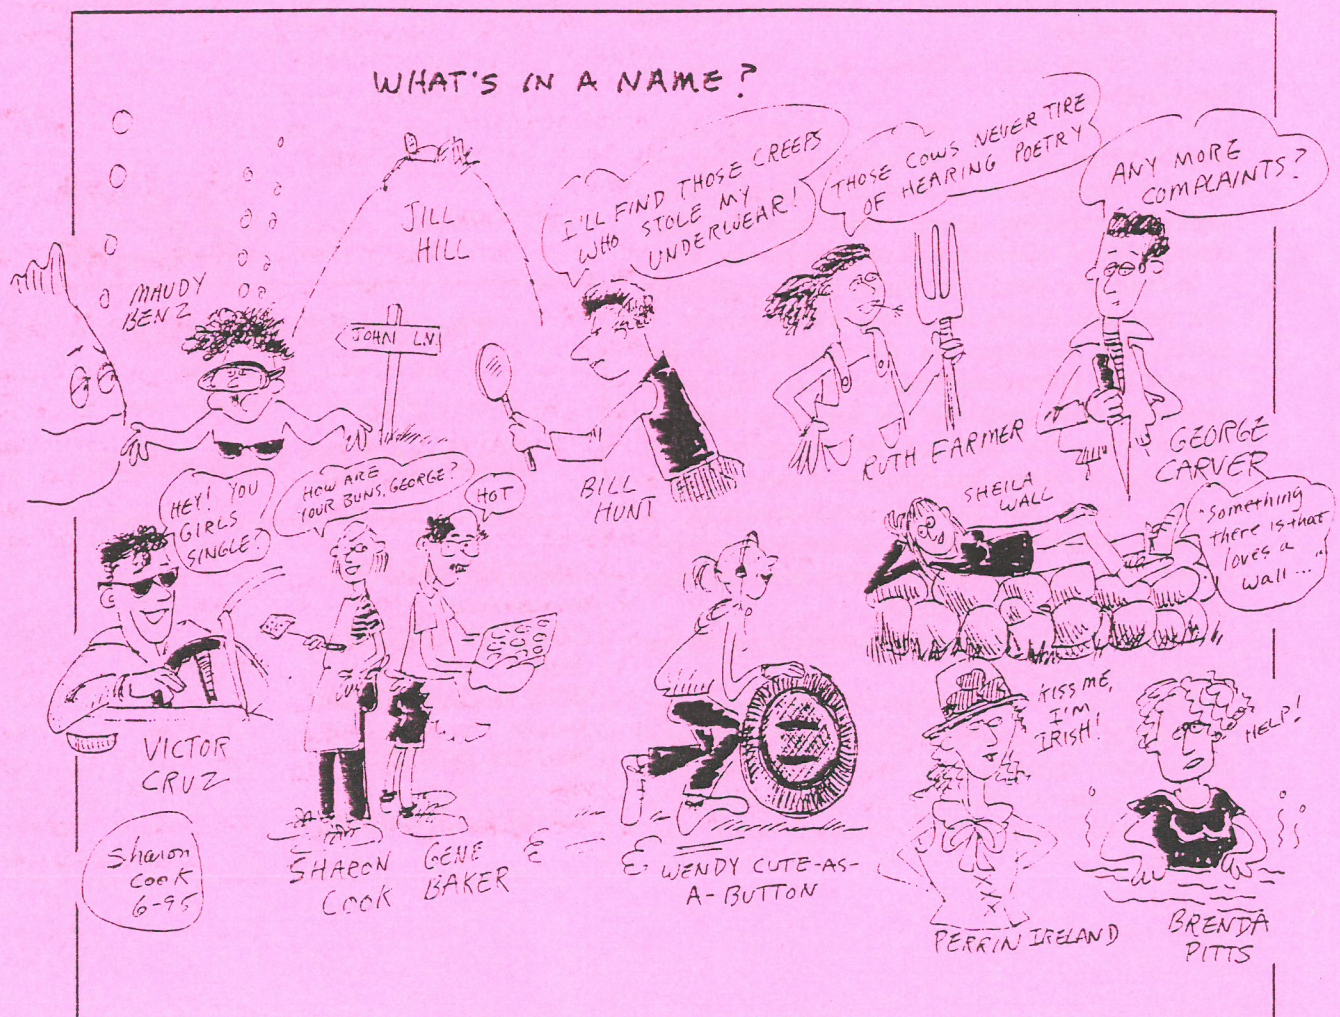 WHAT'S IN A NAME?
MAUDY
BENZ
JILL
HILL
JOHN L.N.
I'LL FIND THOSE CREEPS
WHO STOLE MY
UNDERWEAR!
BILL
HUNT
THOSE COWS NEVER TIRE
OF HEARING POETRY
RUTH FARMER
ANY MORE
COMPLAINTS?
GEORGE
CARVER
HEY! YOU
GIRLS
SINGLE?
VICTOR
CRUZ
HOW ARE
YOUR BUNS, GEORGE?
HOT
SHARON
COOK
GENE
BAKER
WENDY CUTE-AS-
A-BUTTON
SHEILA
WALL
"Something
there is that
loves a
wall..."
KISS ME,
I'M
IRISH!
PERRIN IRELAND
HELP!
BRENDA
PITTS
Sharon
Cook
6-95